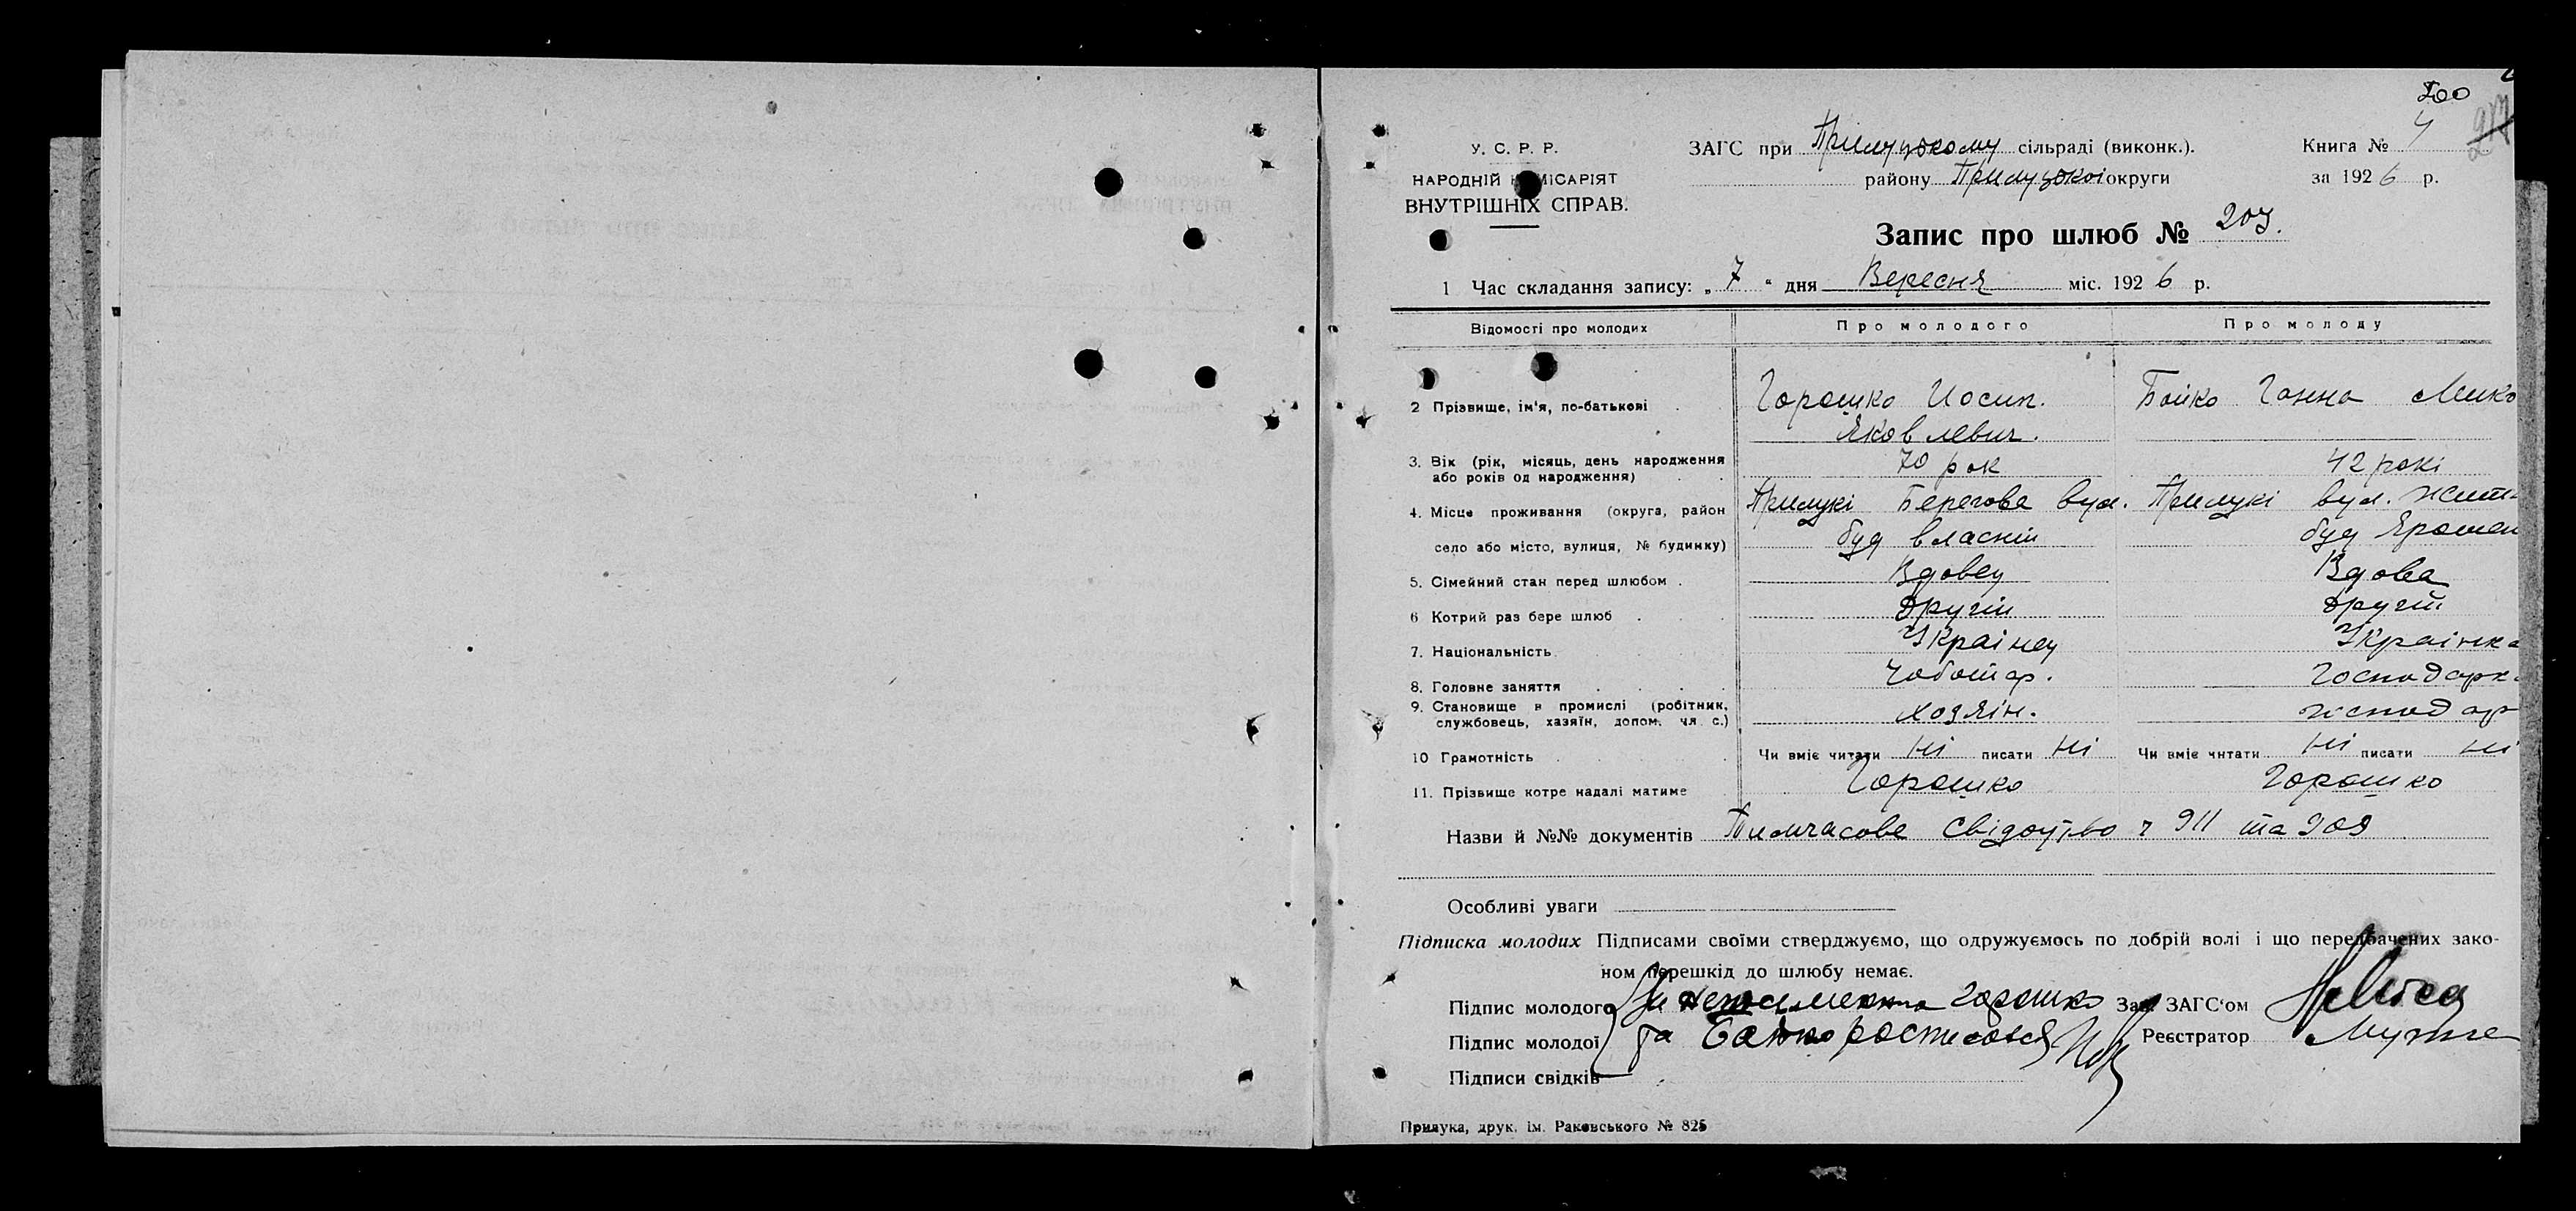 200
У. С. Р. Р.
ЗАГС при Прилуцькому сільраді (виконк.).
Книга № 4
217
НАРОДНІЙ КОМІСАРІЯТ
району Прилуцької округи
за 1926 р.
ВНУТРІШНІХ СПРАВ.
Запис про шлюб № 207.
1 Час складання запису: „ 7 “ дня Вересня міс. 1926 р.
Відомості про молодих
Про молодого
Про молоду
2 Прізвище, ім'я, по-батькові
Горошко Иосип.
Яковлевич.
Бойко Ганна Мико
3. Вік (рік, місяць, день народження
або років од народження)
70 рок
42 рокі
4. Місце проживання (округа, район
село або місто, вулиця, № будинку)
Прилукі Берегова вул.
буд власний
Прилукі вул. Жит
буд Ярошен
5. Сімейний стан перед шлюбом .
Вдовец
Вдова
6 Котрий раз бере шлюб
другій
другій
7. Національність
Українец
Українка
8. Головне заняття
Чоботар.
Господарк
9. Становище в промислі (робітник,
службовець, хазяїн, допом. чл. с.)
хозяїн.
господар
10 Грамотність
Чи вміє читати ні писати ні
Чи вміє читати ні писати ні
11. Прізвище котре надалі матиме
Горошко
Горошко
Назви й №№ документів Тимчасове свідоцтво ч 911 та 909
Особливі уваги
Підписка молодих Підписами своїми стверджуємо, що одружуємось по добрій волі і що передбачених зако-
ном перешкід до шлюбу немає.
Підпис молодого За неписьменних Горошко
Зав. ЗАГС‘ом
Підпис молодої та Бойко росписався
Реєстратор
Підписи свідків
Прилука, друк. ім. Раковського № 825